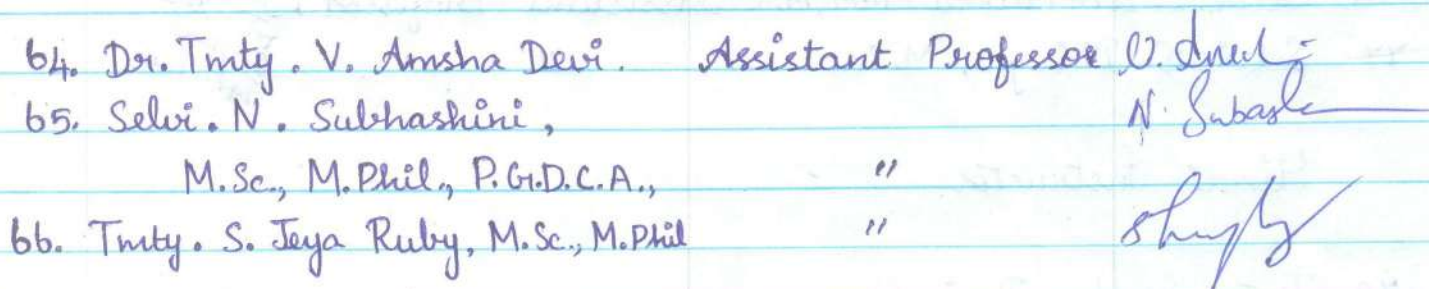 64. Dr. Tmty. V. Amsha Devi. Assistant Professor
65. Selvi. N. Subhashini, N. Subash
M.Sc., M.Phil., P.G.D.C.A., "
66. Tmty. S. Jeya Ruby, M.Sc., M.Phil "